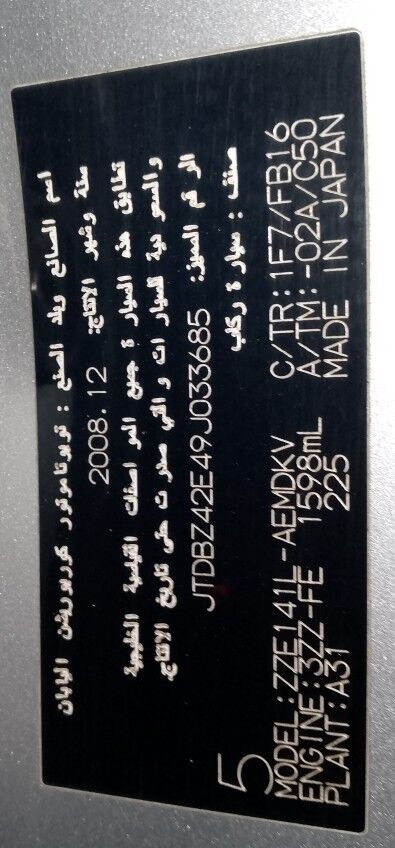 اسم الصانع وبلد الصنع : تويوتا موتور كوربوريشن اليابان
سنة وشهر الانتاج: 2008.12
تطابق هذه السيارة جميع المواصفات القياسية الخليجية
والسعودية للسيارات والتي صدرت حتى تاريخ الانتاج.
الرقم المميز: JTDBZ42E49J033685
صنف : سيارة ركاب
5
MODEL:ZZE141L-AEMDKV C/TR:1F7/FB16
ENGINE:3ZZ-FE 1598mL A/TM:-02A/C50
PLANT:A31 225 MADE IN JAPAN